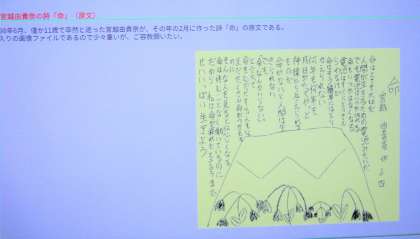 宮越由貴奈の詩「命」(原文)
98年6月、僅か11歳で卒然と逝った宮越由貴奈が、その年の2月に作った詩「命」の原文である。
入りの画像ファイルであるので少々重いが、ご容赦願いたい。
命
宮越 由貴奈
命はとても大切だ
人間が生きるための電池みたいだ
でも電池はいつか切れる
命もいつかはなくなる
電池はすぐに
命はそう簡単には
何年も何年も
月日がたってやっと
神様から与えられるものだ
命がないと人間は生きられない
でも
命なんかいらない
と言って
命をむだにする人もいる
そんな人を見ると悲しくなる
命は休むことなく働いているのに
だから 私は命が疲れたと言うまで
せいいっぱい生きよう